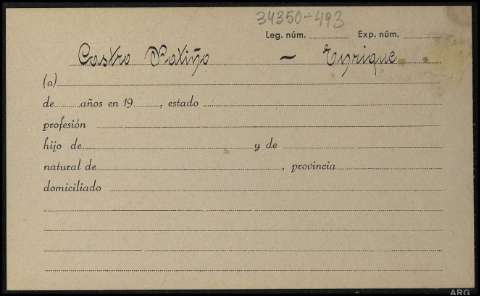 34350-493
Leg. núm. Exp. núm.
Castro Patiño — Enrique
(a)
de años en 19 , estado
profesión
hijo de y de
natural de , provincia
domiciliado
ARG